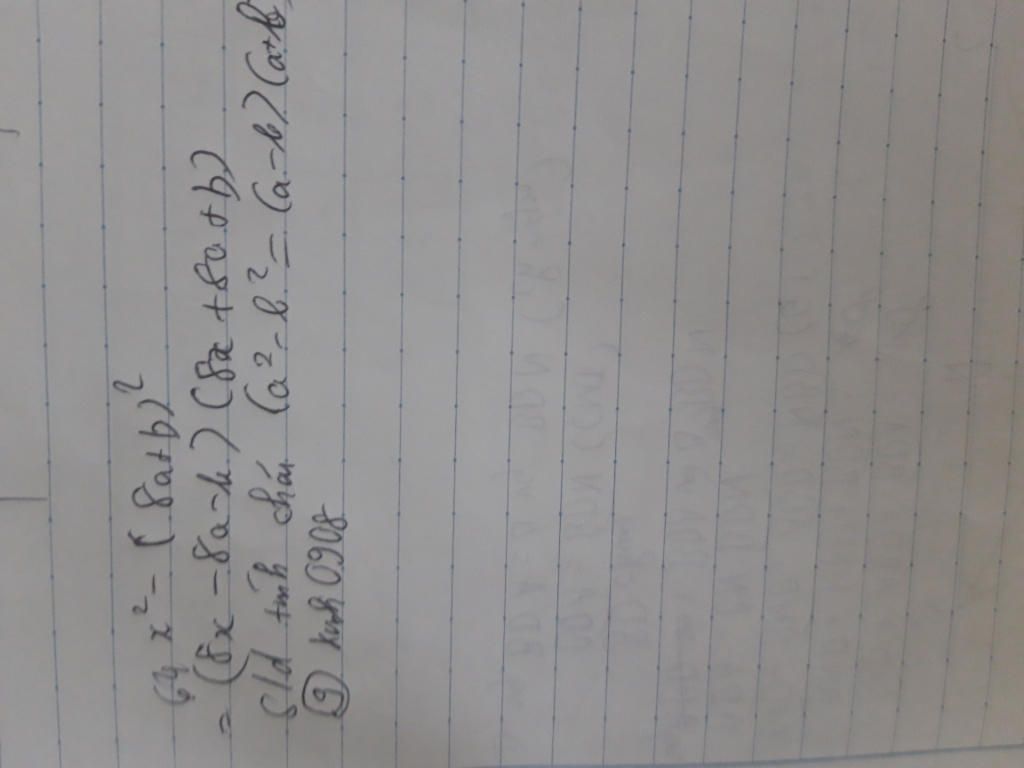 64 x² - (8a+b)²
= (8x - 8a - b) (8x + 8a + b)
s/d tính chấ (a² - b² = (a-b) (a+b)
@ xinh0908